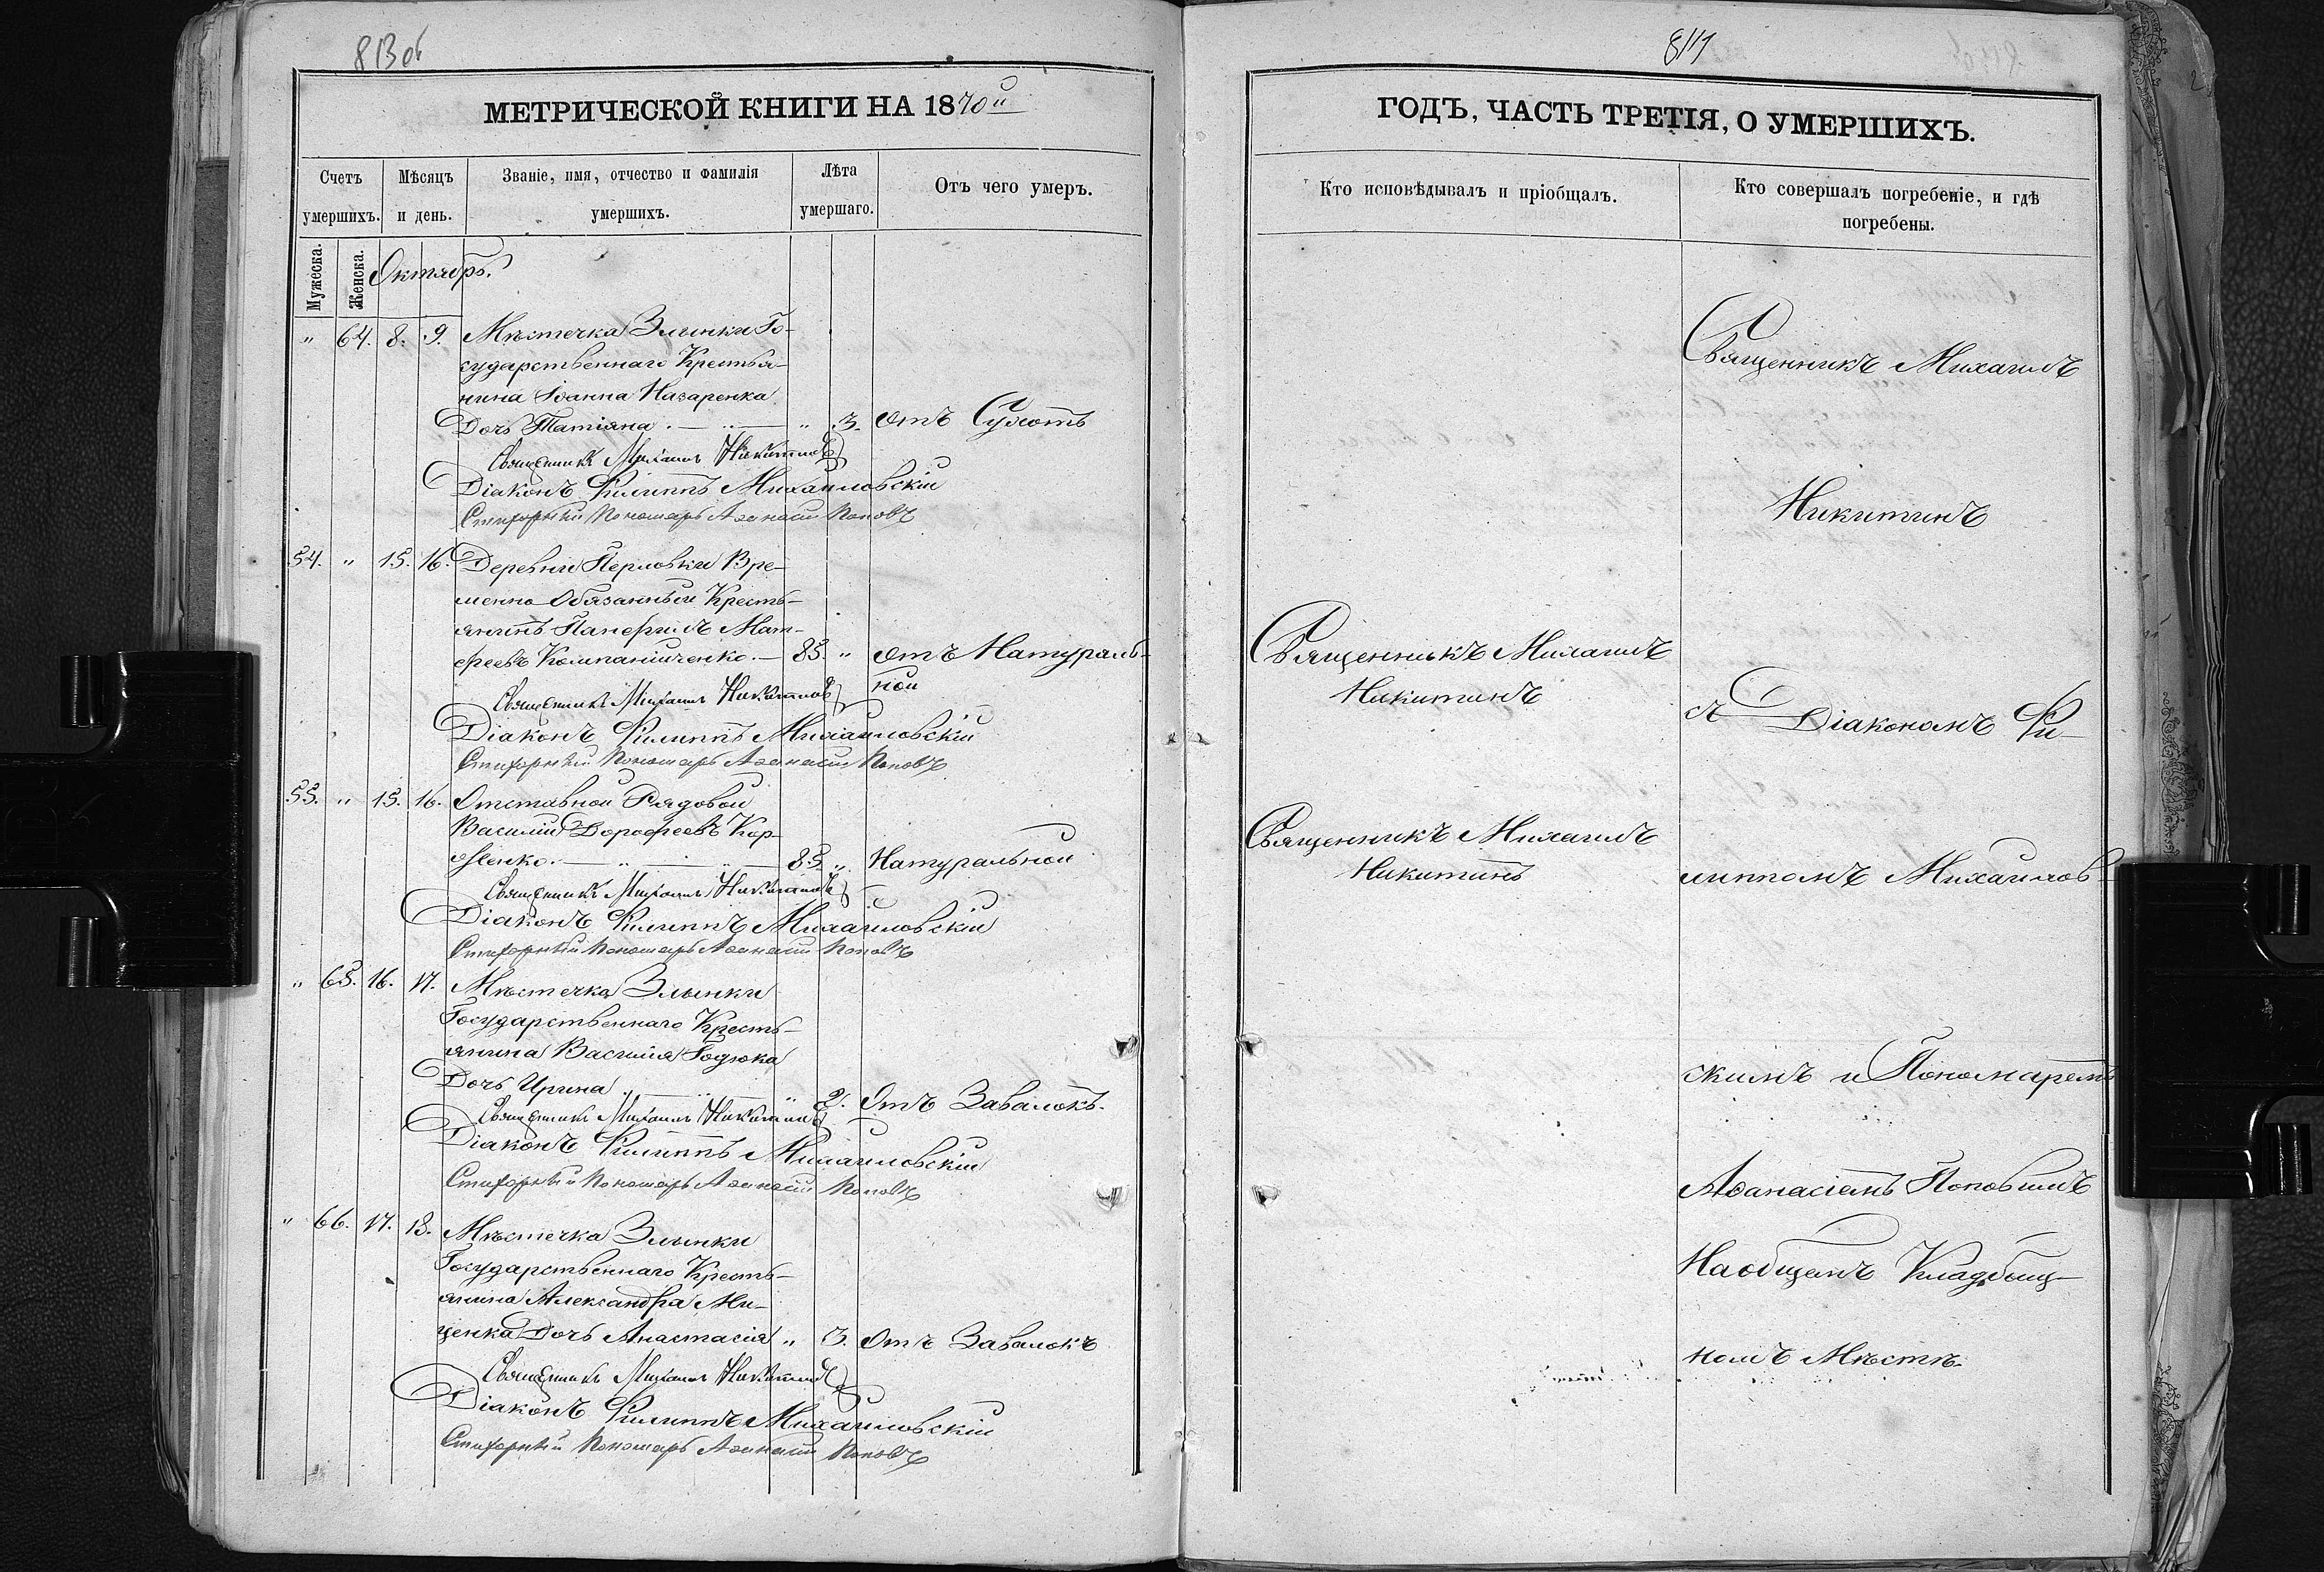 813об
МЕТРИЧЕСКОЙ КНИГИ НА 1870й
Счетъ умершихъ.
Мѣсяцъ и день.
Званіе, имя, отчество и фамилія умершихъ.
Лѣта умершаго.
Отъ чего умеръ.
Мужеска.
Женска.
Октябрь.
" 64. 8. 9. Мѣстечка Злынки Го-
сударственнаго Крестья-
нина Іоанна Назаренка
Дочь Татіяна . — " — " 3. отъ Сухотъ
Священникъ Михаилъ Никитинъ
Діаконъ Филиппъ Михаиловскій
Стихарный Пономарь Аѳанасій Поповъ
54. " 15. 16. Деревни Перловки Вре-
менно Обязанный Кресть-
янинъ Панеѳрилъ Мат-
феевъ Компаніиченко. — 85. " отъ Натураль-
ной
Священникъ Михаилъ Никитинъ
Діаконъ Филиппъ Михаиловскій
Стихарный Пономарь Аѳанасій Поповъ
55. " 15. 16. Отставной Рядовой
Василій Дорофеевъ Кор-
— " — " — 85 " Натуральной
Священникъ Михаилъ Никитинъ
Діаконъ Филиппъ Михаиловскій
Стихарный Пономарь Аѳанасій Поповъ
" 65. 16. 17. Мѣстечка Злынки
Государственнаго Кресть-
янина Василія Годюка
Дочь Ирина " — " — " 2. Отъ Завалокъ.
Священникъ Михаилъ Никитинъ
Діаконъ Филиппъ Михаиловскій
Стихарный Пономарь Аѳанасій Поповъ
" 66. 17. 18. Мѣстечка Злынки
Государственнаго Кресть-
янина Александра Ми-
щенка Дочь Анастасія " 3. Отъ Завалокъ
Священникъ Михаилъ Никитинъ
Діаконъ Филиппъ Михаиловскій
Стихарный Пономарь Аѳанасій Поповъ
814
ГОДЪ, ЧАСТЬ ТРЕТІЯ, О УМЕРШИХЪ.
Кто исповѣдывалъ и пріобщалъ.
Кто совершалъ погребеніе, и гдѣ
погребены.
Священникъ Михаилъ
Никитинъ
Священникъ Михаилъ
Никитинъ
съ Діакономъ Фи-
Священникъ Михаилъ
Никитинъ
липпомъ Михаилов-
скимъ и Пономаремъ
Аѳанасіемъ Поповымъ
На общемъ Кладбищ-
номъ Мѣстѣ.